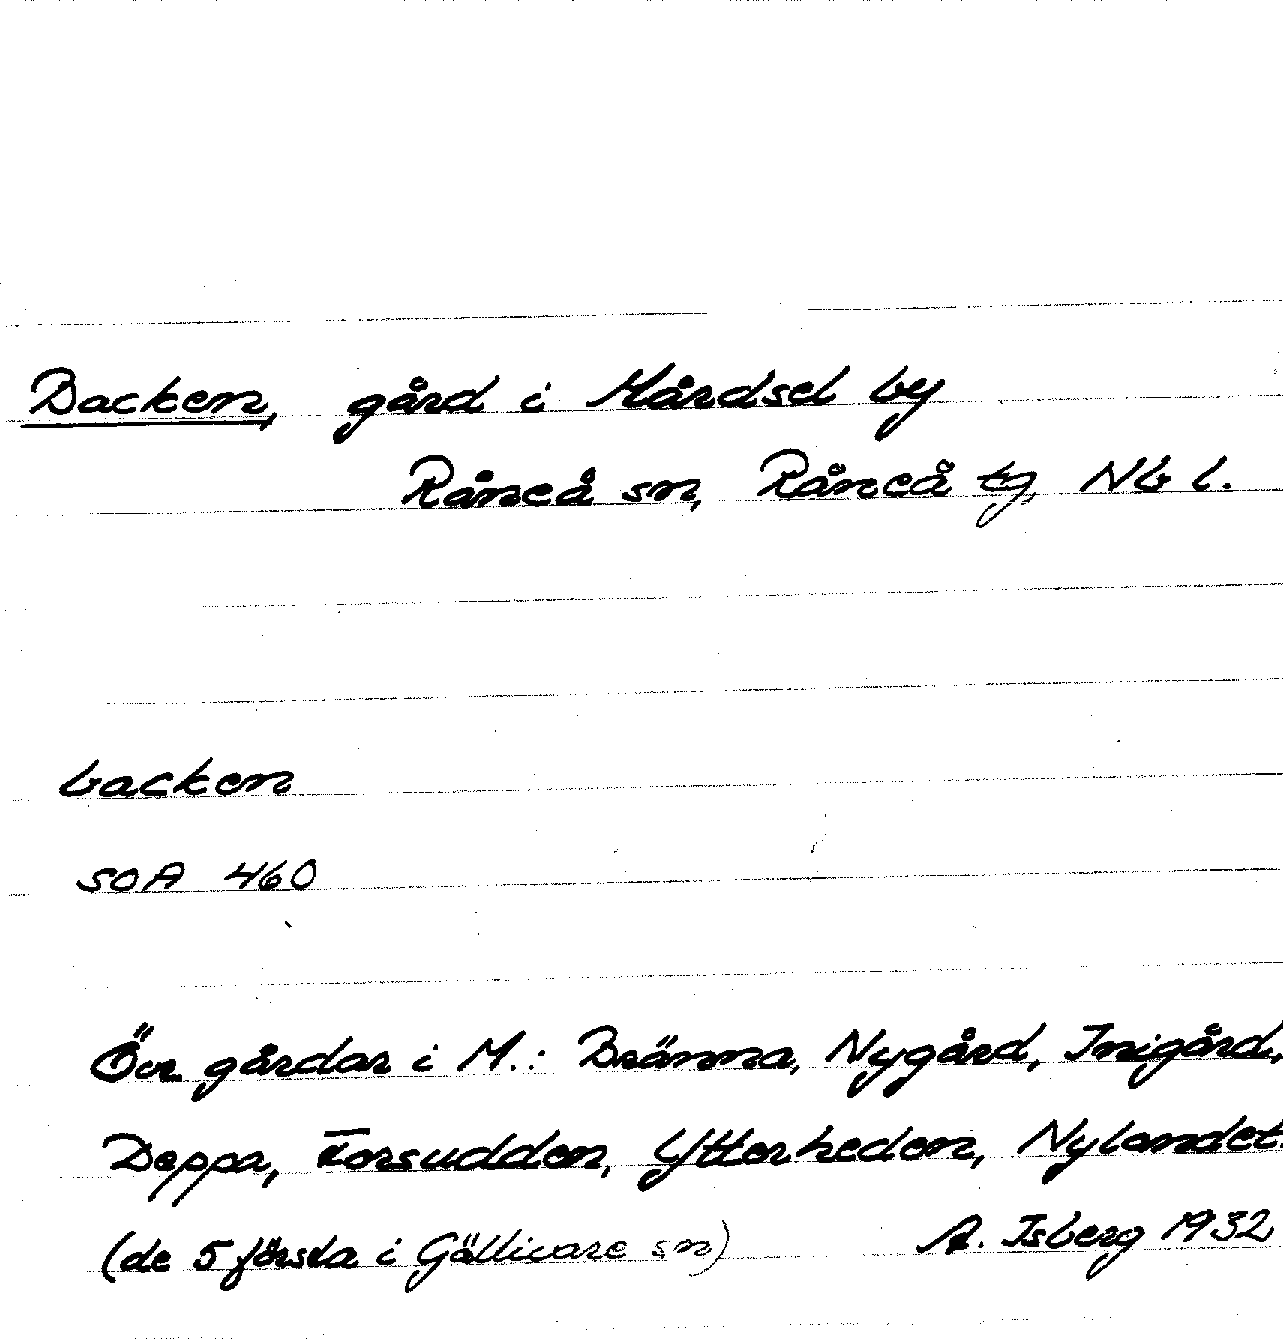 Backen, gård i Mårdsel by
Råneå sn, Råneå tg, Nb l.
backen
SOA 460
Övr. gårdar i M.: Bränna, Nygård, Inigård,
Deppa, Forsudden, Ytterheden, Nylandet.
(de 5 första i Gällivare sn) A. Isberg 1932